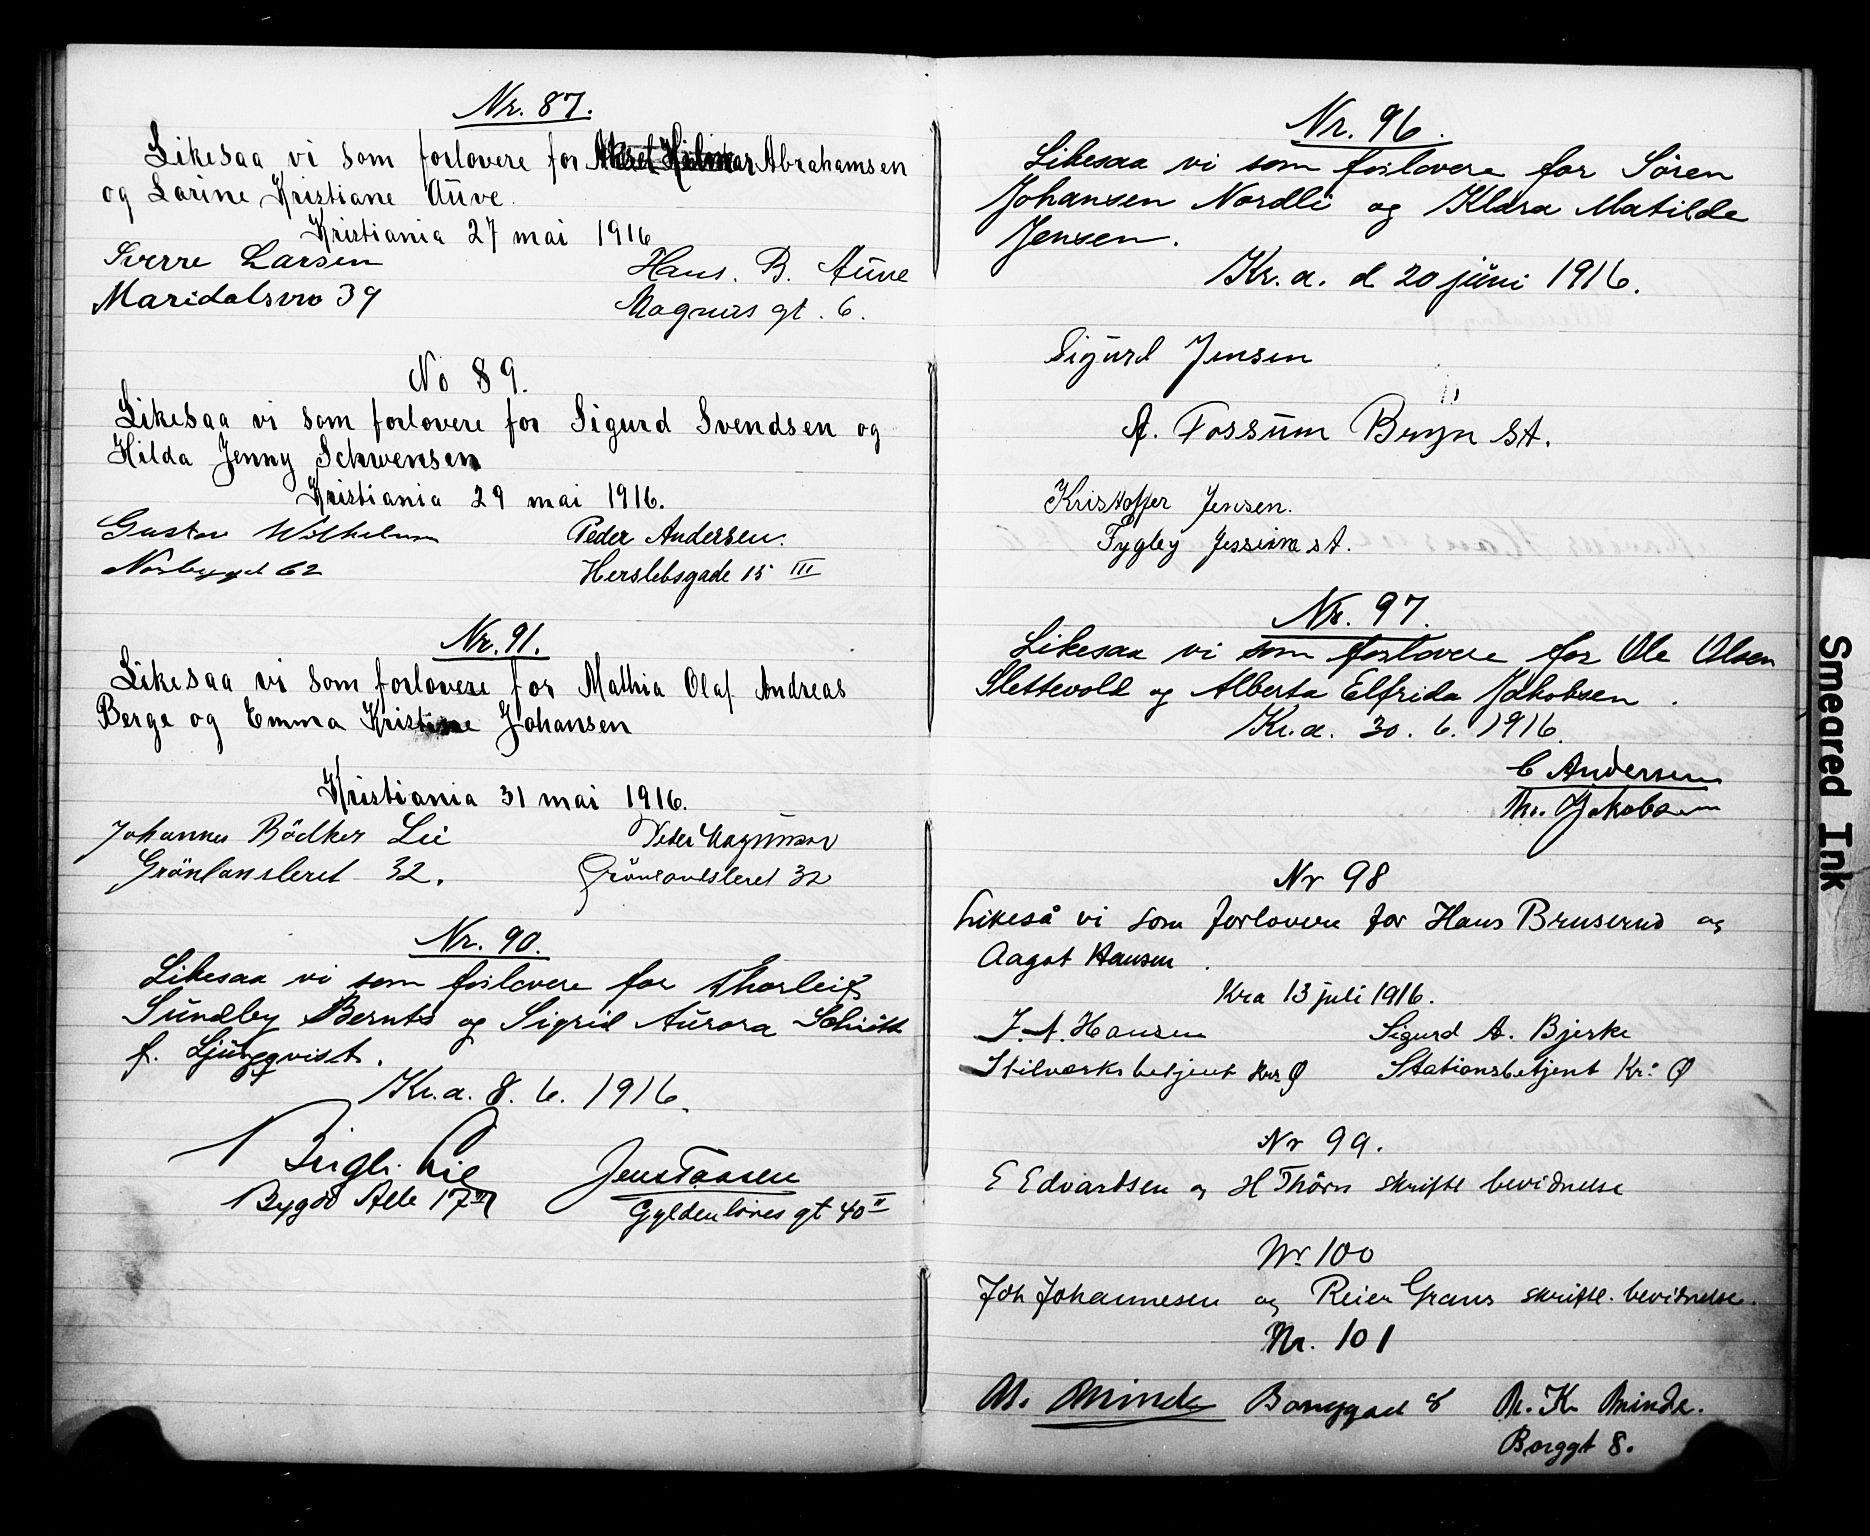 Nr. 87.
Likesaa vi som forlovere for Aksel Hilmar Abrahamsen
og Larine Kristiane Aüve.
Kristiania 27 mai 1916
Sverre Larsen
Maridalsvei 39
Hans. B. Aüve
Magnus gt. 6.
No 89.
Likesaa vi som forlovere for Sigurd Svendsen og
Hilda Jenny Schwensen
Kristiania 29 mai 1916.
Gustav Wilhelmsen
62
Peder Andersen.
Herslebsgade 15 III
Nr. 91.
Likesaa vi som forlovere for Mathia Olaf Andreas
Berge og Emma Kristine Johansen
Kristiania 31 mai 1916.
Johannes Bödker Lie
Grönlansleret 32.
Peder Magnussen
Grönlandsleret 32
Nr. 90.
Likesaa vi som forlovere for Thorleif
Sündby Bernts og Sigrid Aürora Schiött
f. Ljüngqvist.
Kr.a. 8. 6. 1916.
Lie
Bygdø Alle 17
Jens Taasen
Gyldenløves gt 40 II
Nr. 96.
Likesaa vi som forlovere for Søren
Johansen Nordli og Klara Matilde
Jensen.
Kr.a. d 20 jüni 1916.
Sigürd Jensen
A. Fossüm Bryn St.
Kristoffer Jensen.
Fygley Jessüm st.
Nr. 97.
Likesaa vi som forlovere for Ole Olsen
Slettevold og Alberta Elfrida Jakobsen.
Kr.a. 30. 6. 1916.
C Andersen
Th. Jakobsen
Nr 98
Likeså vi som forlovere for Hans Bruserud og
Aagot Hansen.
Kra 13 juli 1916.
J. A. Hansen
Stilværksbetjent Kra Ø
Sigurd A. Bjerke
Stationsbetjent Kr: Ø
Nr 99.
E Edvardsen og H Thörn skriftl bevidnelse
Nr 100
Joh Johannesen og Reier Graus skriftl. bevidnelse.
Nr. 101
M. Minde Borggad 8
M. K. Minde.
Borggt 8.
Smeared Ink